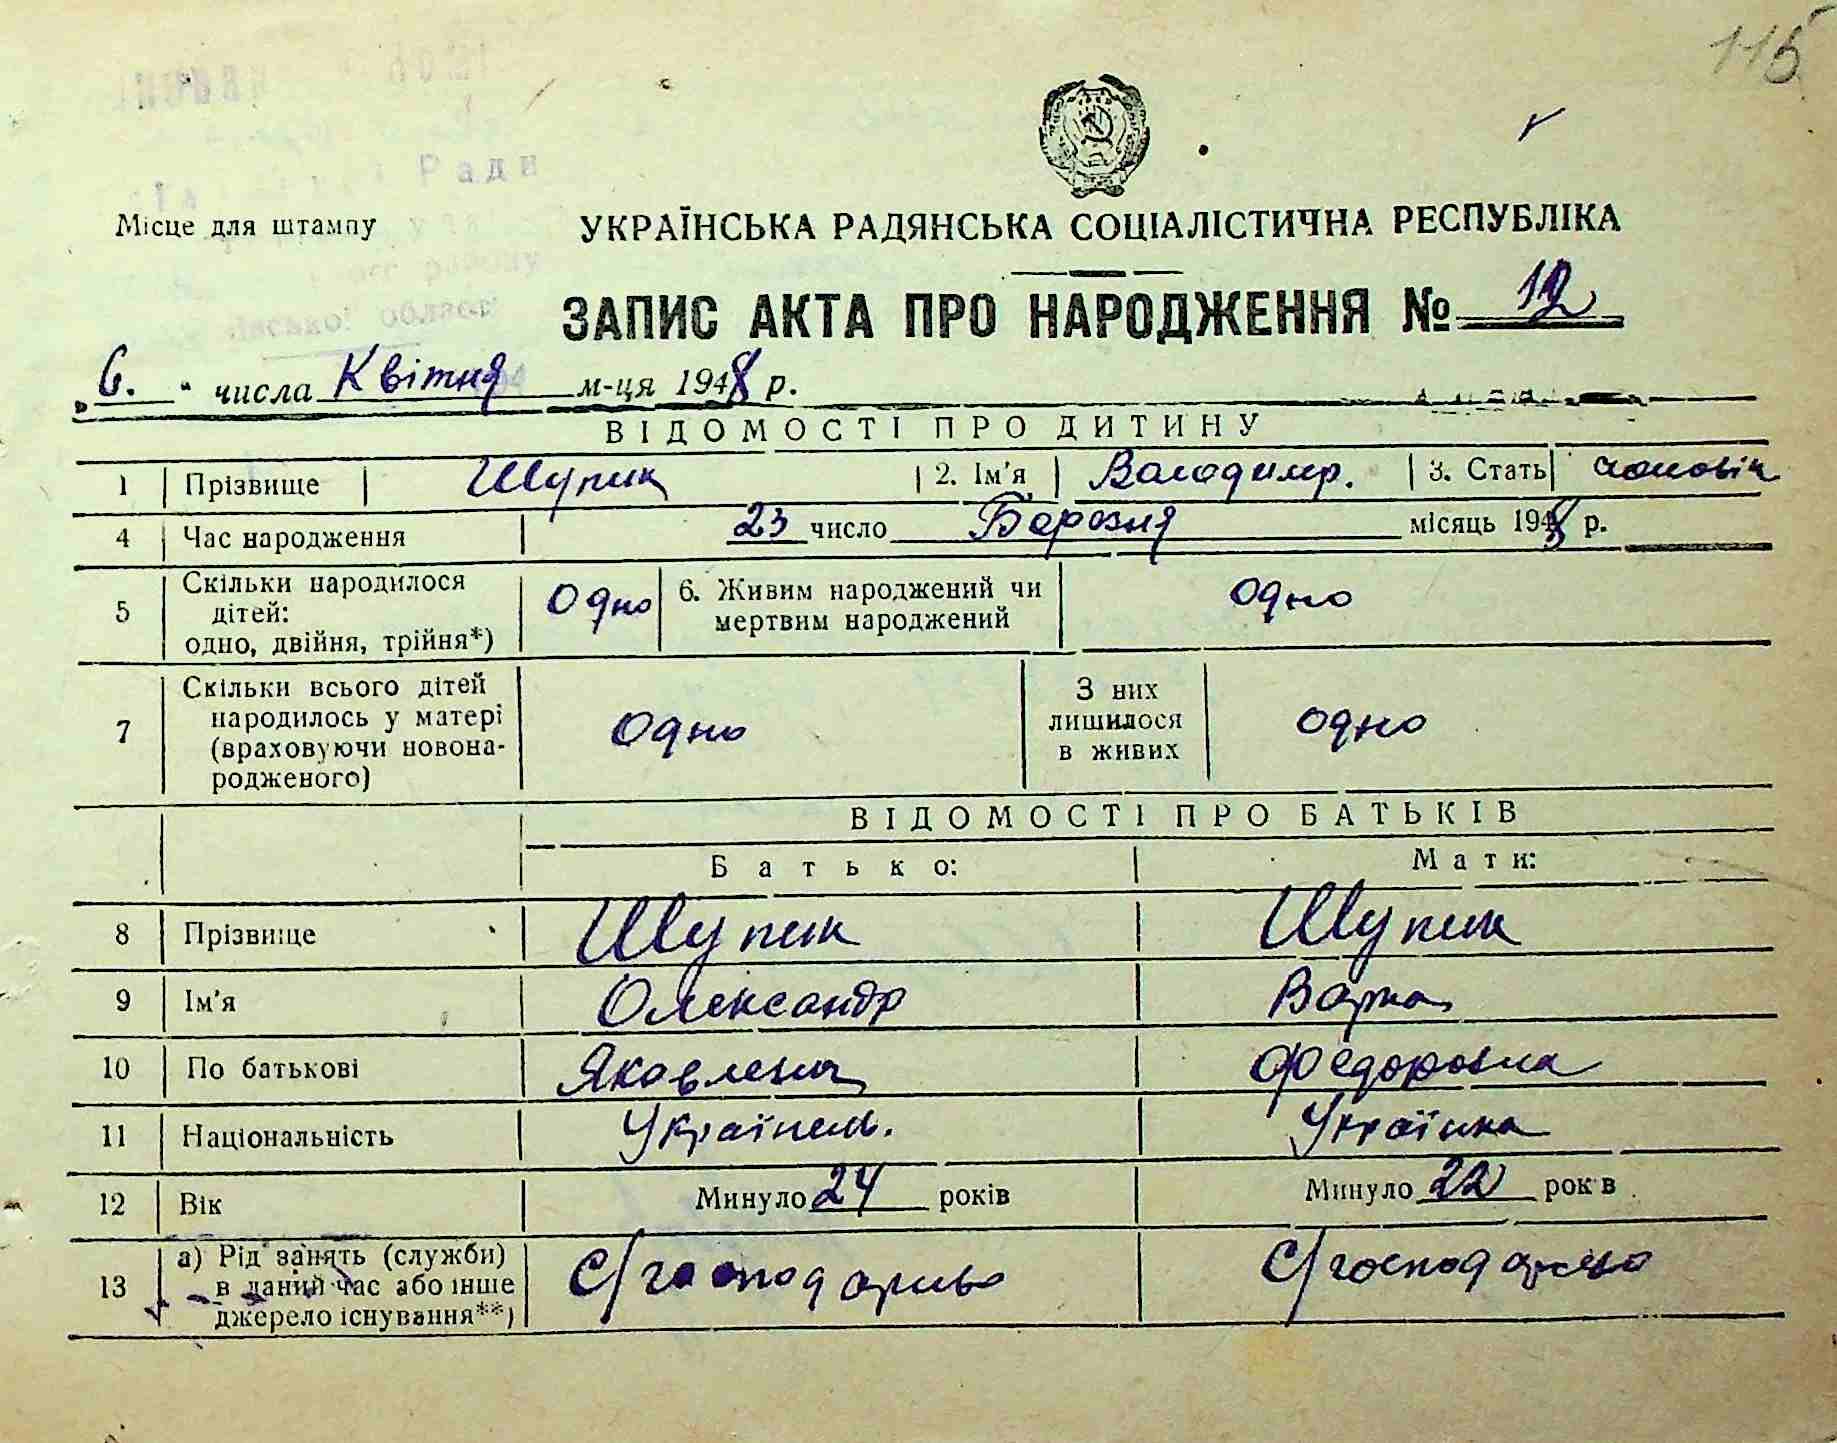 115
Ради
Місце для штампу
УКРАЇНСЬКА РАДЯНСЬКА СОЦІАЛІСТИЧНА РЕСПУБЛІКА
ЗАПИС АКТА ПРО НАРОДЖЕННЯ № 12
області
„6.“ числа Квітня м-ця 1948 р.
ВІДОМОСТІ ПРО ДИТИНУ
1 Прізвище Шупик 2. Ім'я Володимир. 3. Стать чоловік
4 Час народження 23 число Березня місяць 1948 р.
5 Скільки народилося дітей: одно, двійня, трійня*) Одно 6. Живим народжений чи мертвим народжений Одно
7 Скільки всього дітей народилось у матері (враховуючи новонародженого) Одно З них лишилося в живих Одно
ВІДОМОСТІ ПРО БАТЬКІВ
Батько: Мати:
8 Прізвище Шупик Шупик
9 Ім'я Олександр Варка
10 По батькові Яковлевич Федоровна
11 Національність Українець. Українка
12 Вік Минуло 24 років Минуло 22 років
13 а) Рід занять (служби) в даний час або інше джерело існування**) С/господарство С/господарство